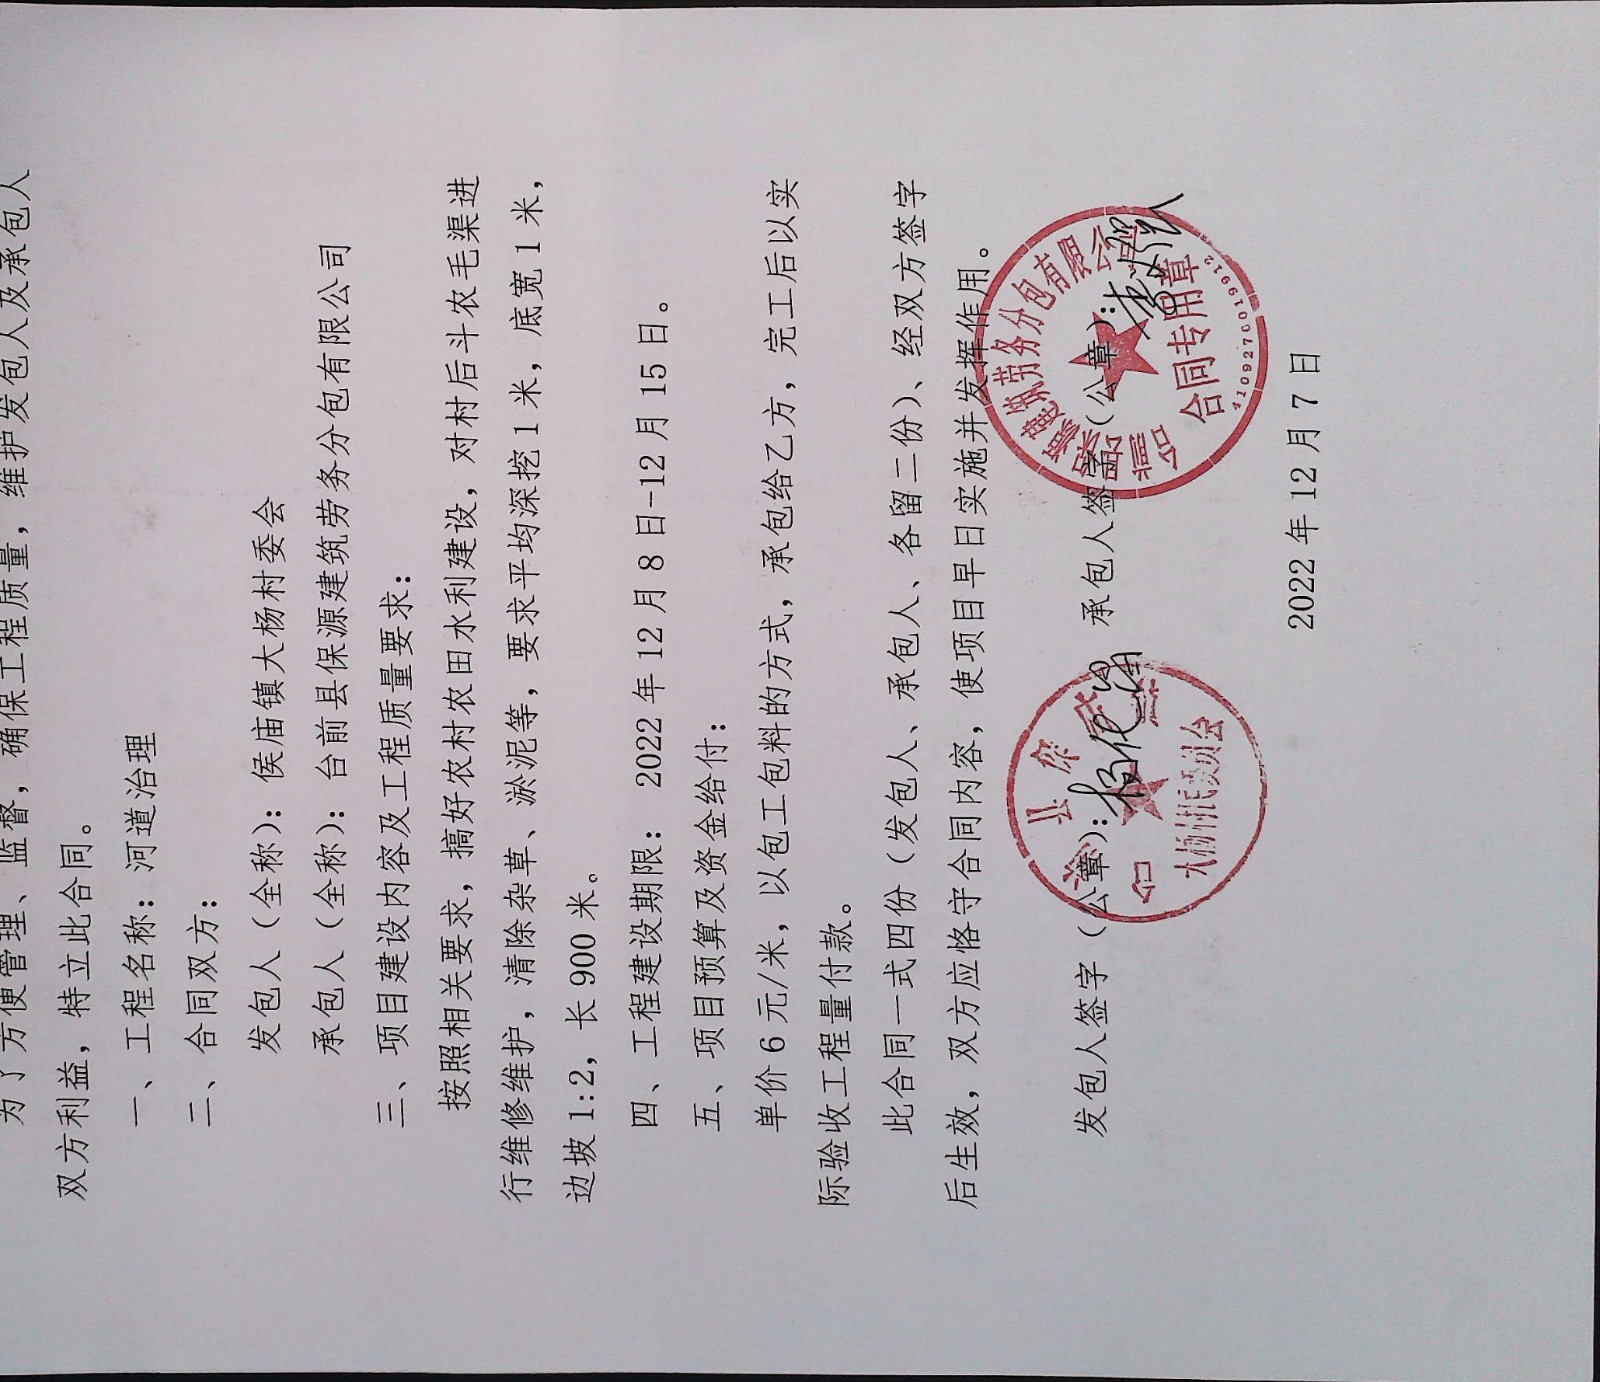 为了方便管理、监督，确保工程质量，维护发包人及承包人
双方利益，特立此合同。
一、工程名称：河道治理
二、合同双方：
发包人（全称）：侯庙镇大杨村委会
承包人（全称）：台前县保源建筑劳务分包有限公司
三、项目建设内容及工程质量要求：
按照相关要求，搞好农村农田水利建设，对村后斗农毛渠进
行维修维护，清除杂草、淤泥等，要求平均深挖1米，底宽1米，
边坡1:2，长900米。
四、工程建设期限：2022年12月8日-12月15日。
五、项目预算及资金给付：
单价6元/米，以包工包料的方式，承包给乙方，完工后以实
际验收工程量付款。
此合同一式四份（发包人、承包人、各留二份）、经双方签字
后生效，双方应恪守合同内容，使项目早日实施并发挥作用。
发包人签字（公章）： 承包人签字（公章）：
大杨村村民委员会
台前县保源建筑劳务分包有限公司
合同专用章
4109276019912
2022年12月7日